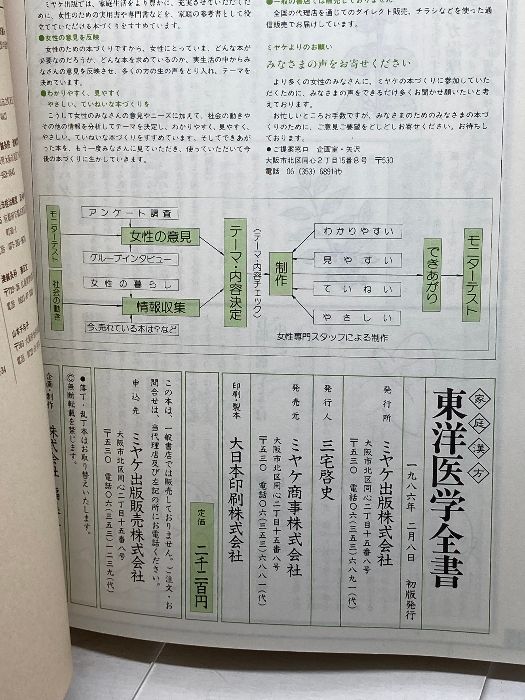 ミヤケ出版では、家庭生活をより豊かに、充実させていただくた
めに、女性のための実用書や専門書などを、家庭の参考書として役立
てていただける本づくりをすすめています。
●女性の意見を反映
女性のための本づくりですから、女性にとっていま、どんな本が
必要なのだろうか、どんな本を求めているのか、実生活の中からみ
なさんの意見を反映させ、多くの方の生の声をとり入れ、テーマを
決めています。
●わかりやすく、見やすく
やさしい、ていねいな本づくりを
こうして女性のみなさんの意見やニーズに加えて、社会の動きや
その他の情報を分析してテーマを決定し、わかりやすく、見やすく、
やさしい、ていねいな本づくりをすすめています。そしてできあ
がった本を、もう一度みなさんに見ていただき、使っていただいて今
後の本づくりに生かしていきます。
●一般の書店では販売しておりません
全国の代理店を通じてのダイレクト販売、チラシなどを使った通
信販売でお届けしています。
ミヤケよりのお願い
みなさまの声をお寄せください
より多くの女性のみなさんに、ミヤケの本づくりに参加していた
だくために、みなさまの声をできるだけ多くお聞かせ願いたいと考
えております。
お忙しいところお手数ですが、みなさまのためのみなさまの本づ
くりのために、ご意見ご要望をどしどしお寄せください。お待ちし
ております。
●ご提案窓口 企画室・矢沢
大阪市北区同心2丁目15番8号 〒530
電話 06(353)6891㈹
モニターテスト
社会の動き
アンケート調査
女性の意見
グループインタビュー
女性の暮らし
情報収集
今、売れている本は?など
テーマ・内容決定
(テーマ・内容チェック)
制作
わかりやすい
見やすい
ていねい
やさしい
女性専門スタッフによる制作
できあがり
モニターテスト
家庭漢方
東洋医学全書
一九八六年 二月八日 初版発行
発行所 ミヤケ出版株式会社
大阪市北区同心二丁目十五番八号
〒五三〇 電話〇六(三五三)六八九一(代)
発行人 三宅啓史
発売元 ミヤケ商事株式会社
大阪市北区同心二丁目十五番八号
〒五三〇 電話〇六(三五三)六八八一(代)
印刷・製本 大日本印刷株式会社
定価 二千二百円
この本は、一般書店では販売しておりません。ご注文・お
問合せは、当代理店及び左記の所にお電話ください。
申込先 ミヤケ出版販売株式会社
大阪市北区同心二丁目十五番八号
〒五三〇 電話〇六(三五三)一二三九(代)
●落丁・乱丁本はお取り替えいたします。
◎無断転載を禁じます。
企画・制作 株式会社